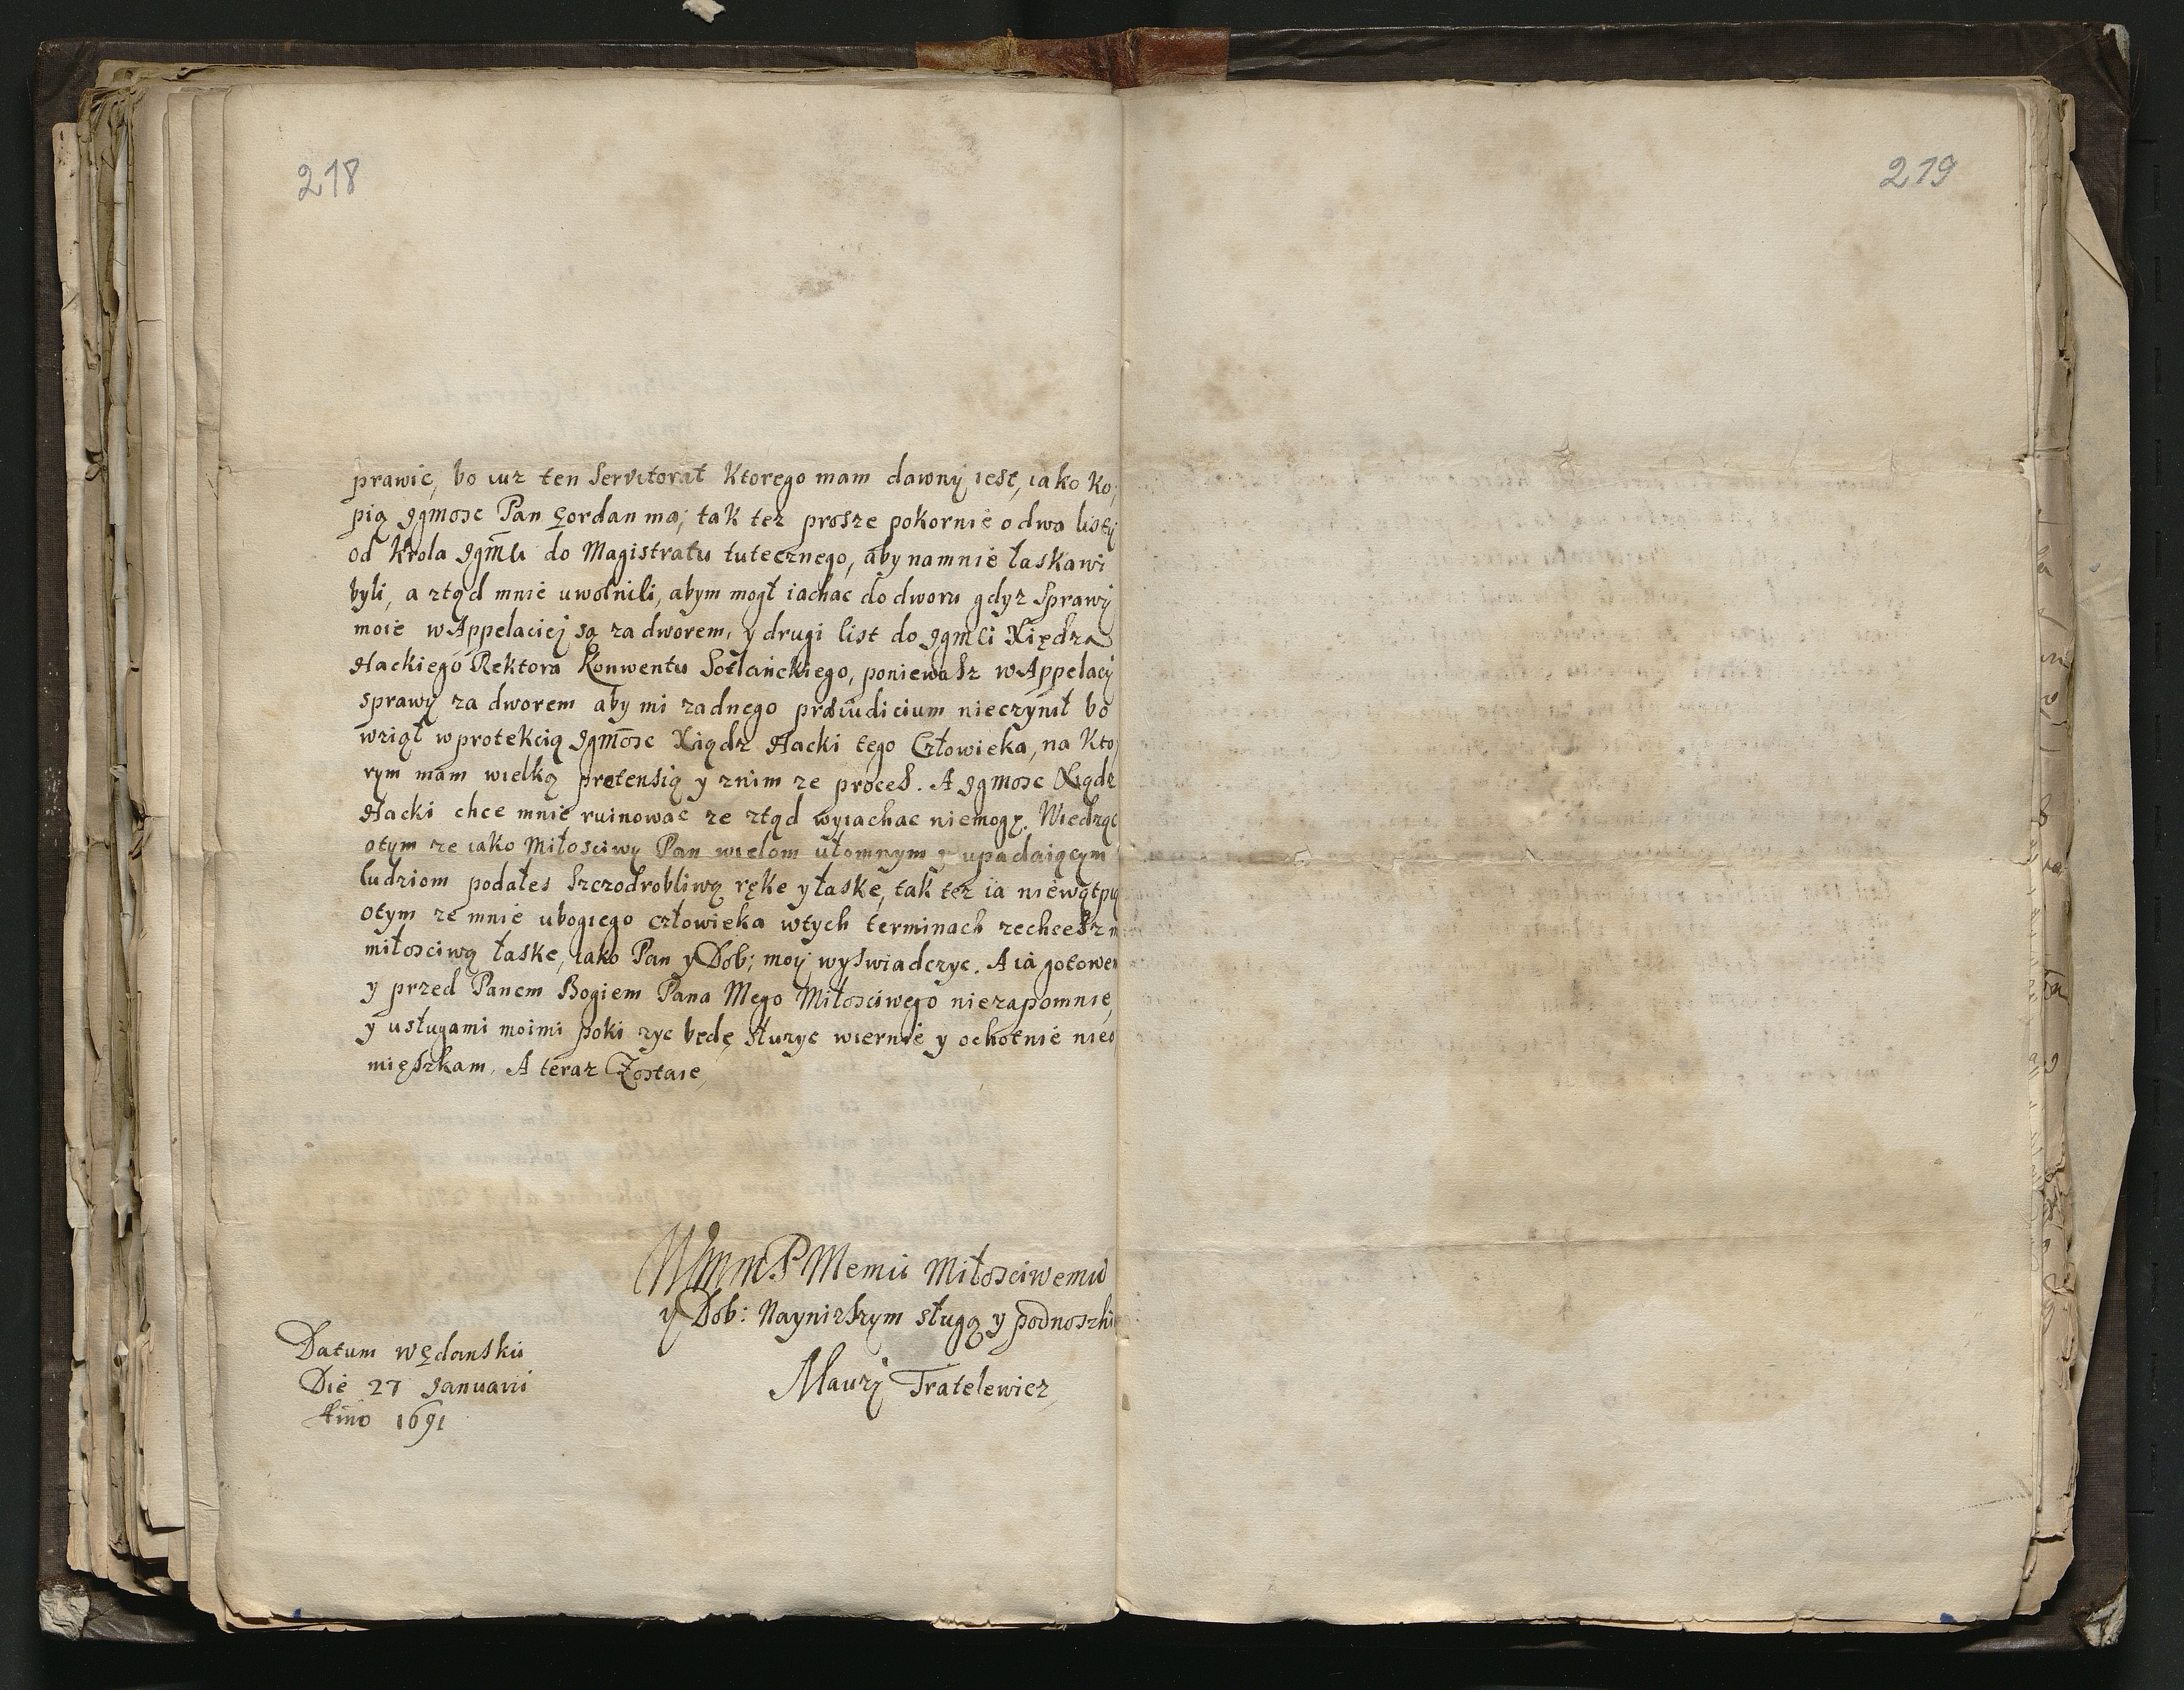 218
219
prawic, bo iuz ten Servitorat Ktorego mam dawny iest, iako Ko,
pią Jgmosc Pan Gordan ma; tak tez prosze pokornie o dwa listy
od Krola Jgm̃ci do Magistratu tutecznego, aby namnie łaskawi
byli, a ztąd mnie uwolnili, abym mogł iachac do dworu gdyz Sprawy
moie w Appelaciej są za dworem, y drugi list do Jgmci Xiędza
Hackiego Rektora Konwentu Sotlanckiego, poniewasz w Appelacy
sprawy za dworem aby mi zadnego præiudicium nieczynił bo
wziął w protekcią Jgmosc Xiądz Hacki tego Człowieka, na Kto
rym mam wielką pretensią y znim ze proces. A Jgmosc Xiądz
Hacki chce mnie ruinowac ze ztąd wyiachac niemogę. Wiedząc
otym ze iako Miłosciwy Pan wielom ułomnym y upadaiącym
ludziom podałes szczodrobliwą rękę y łaskę, tak tez ia niewątpię
otym ze mnie ubogiego człowieka wtych terminach zechcesz
miłosciwą łaske, iako Pan y Dob; moy wyswiadczyc. A ia gotowem
y przed Panem Bogiem Pana Mego Miłosciwego niezapomnie,
y usługami moimi poki zyc będę służyc wiernie y ochotnie nieo
mięszkam. A teraz Zostaie,
WmmP Memu Miłosciwemu
y Dob: Nayniszym sługą y podnoszki
Maury Tratelewicz
Datum wGdansku
Die 27 Januarii
Añno 1691